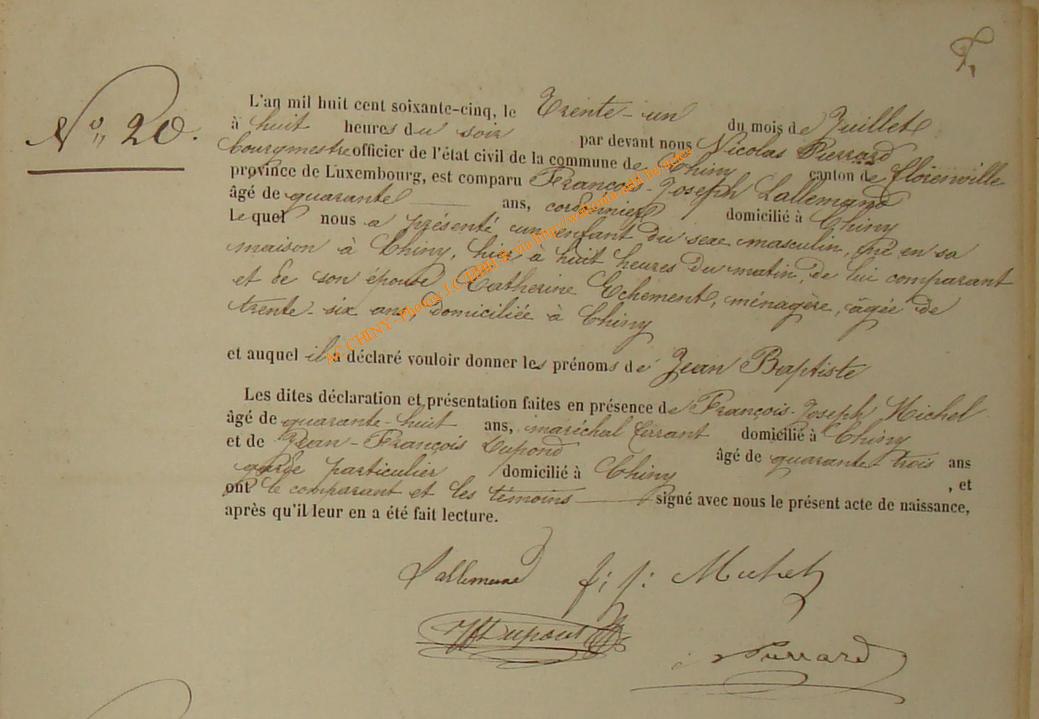 F.
N° 20.
L'an mil huit cent soixante-cinq, le Trente-un du mois de Juillet
à huit heures du soir par devant nous Nicolas Pierrard
bourgmestre officier de l'état civil de la commune de Chiny canton de florenville
province de Luxembourg, est comparu François-Joseph Lallemand
âgé de quarante ans, cordonnier domicilié à Chiny
Le quel nous a présenté un enfant du sexe masculin, né en sa
maison à Chiny, hier à huit heures du matin, de lui comparant
et de son épouse Catherine Echement, ménagère, âgée de
trente-six ans, domiciliée à Chiny
et auquel il a déclaré vouloir donner les prénoms de Jean Baptiste
Les dites déclaration et présentation faites en présence de François-Joseph Michel
âgé de quarante-huit ans, maréchal ferrant domicilié à Chiny
et de Jean-François Dupond âgé de quarante trois ans
garde particulier domicilié à Chiny , et
ont le comparant et les témoins signé avec nous le présent acte de naissance,
après qu'il leur en a été fait lecture.
Lallemand f: j: Michel
Dupont
Pierrard
CHINY - Photos